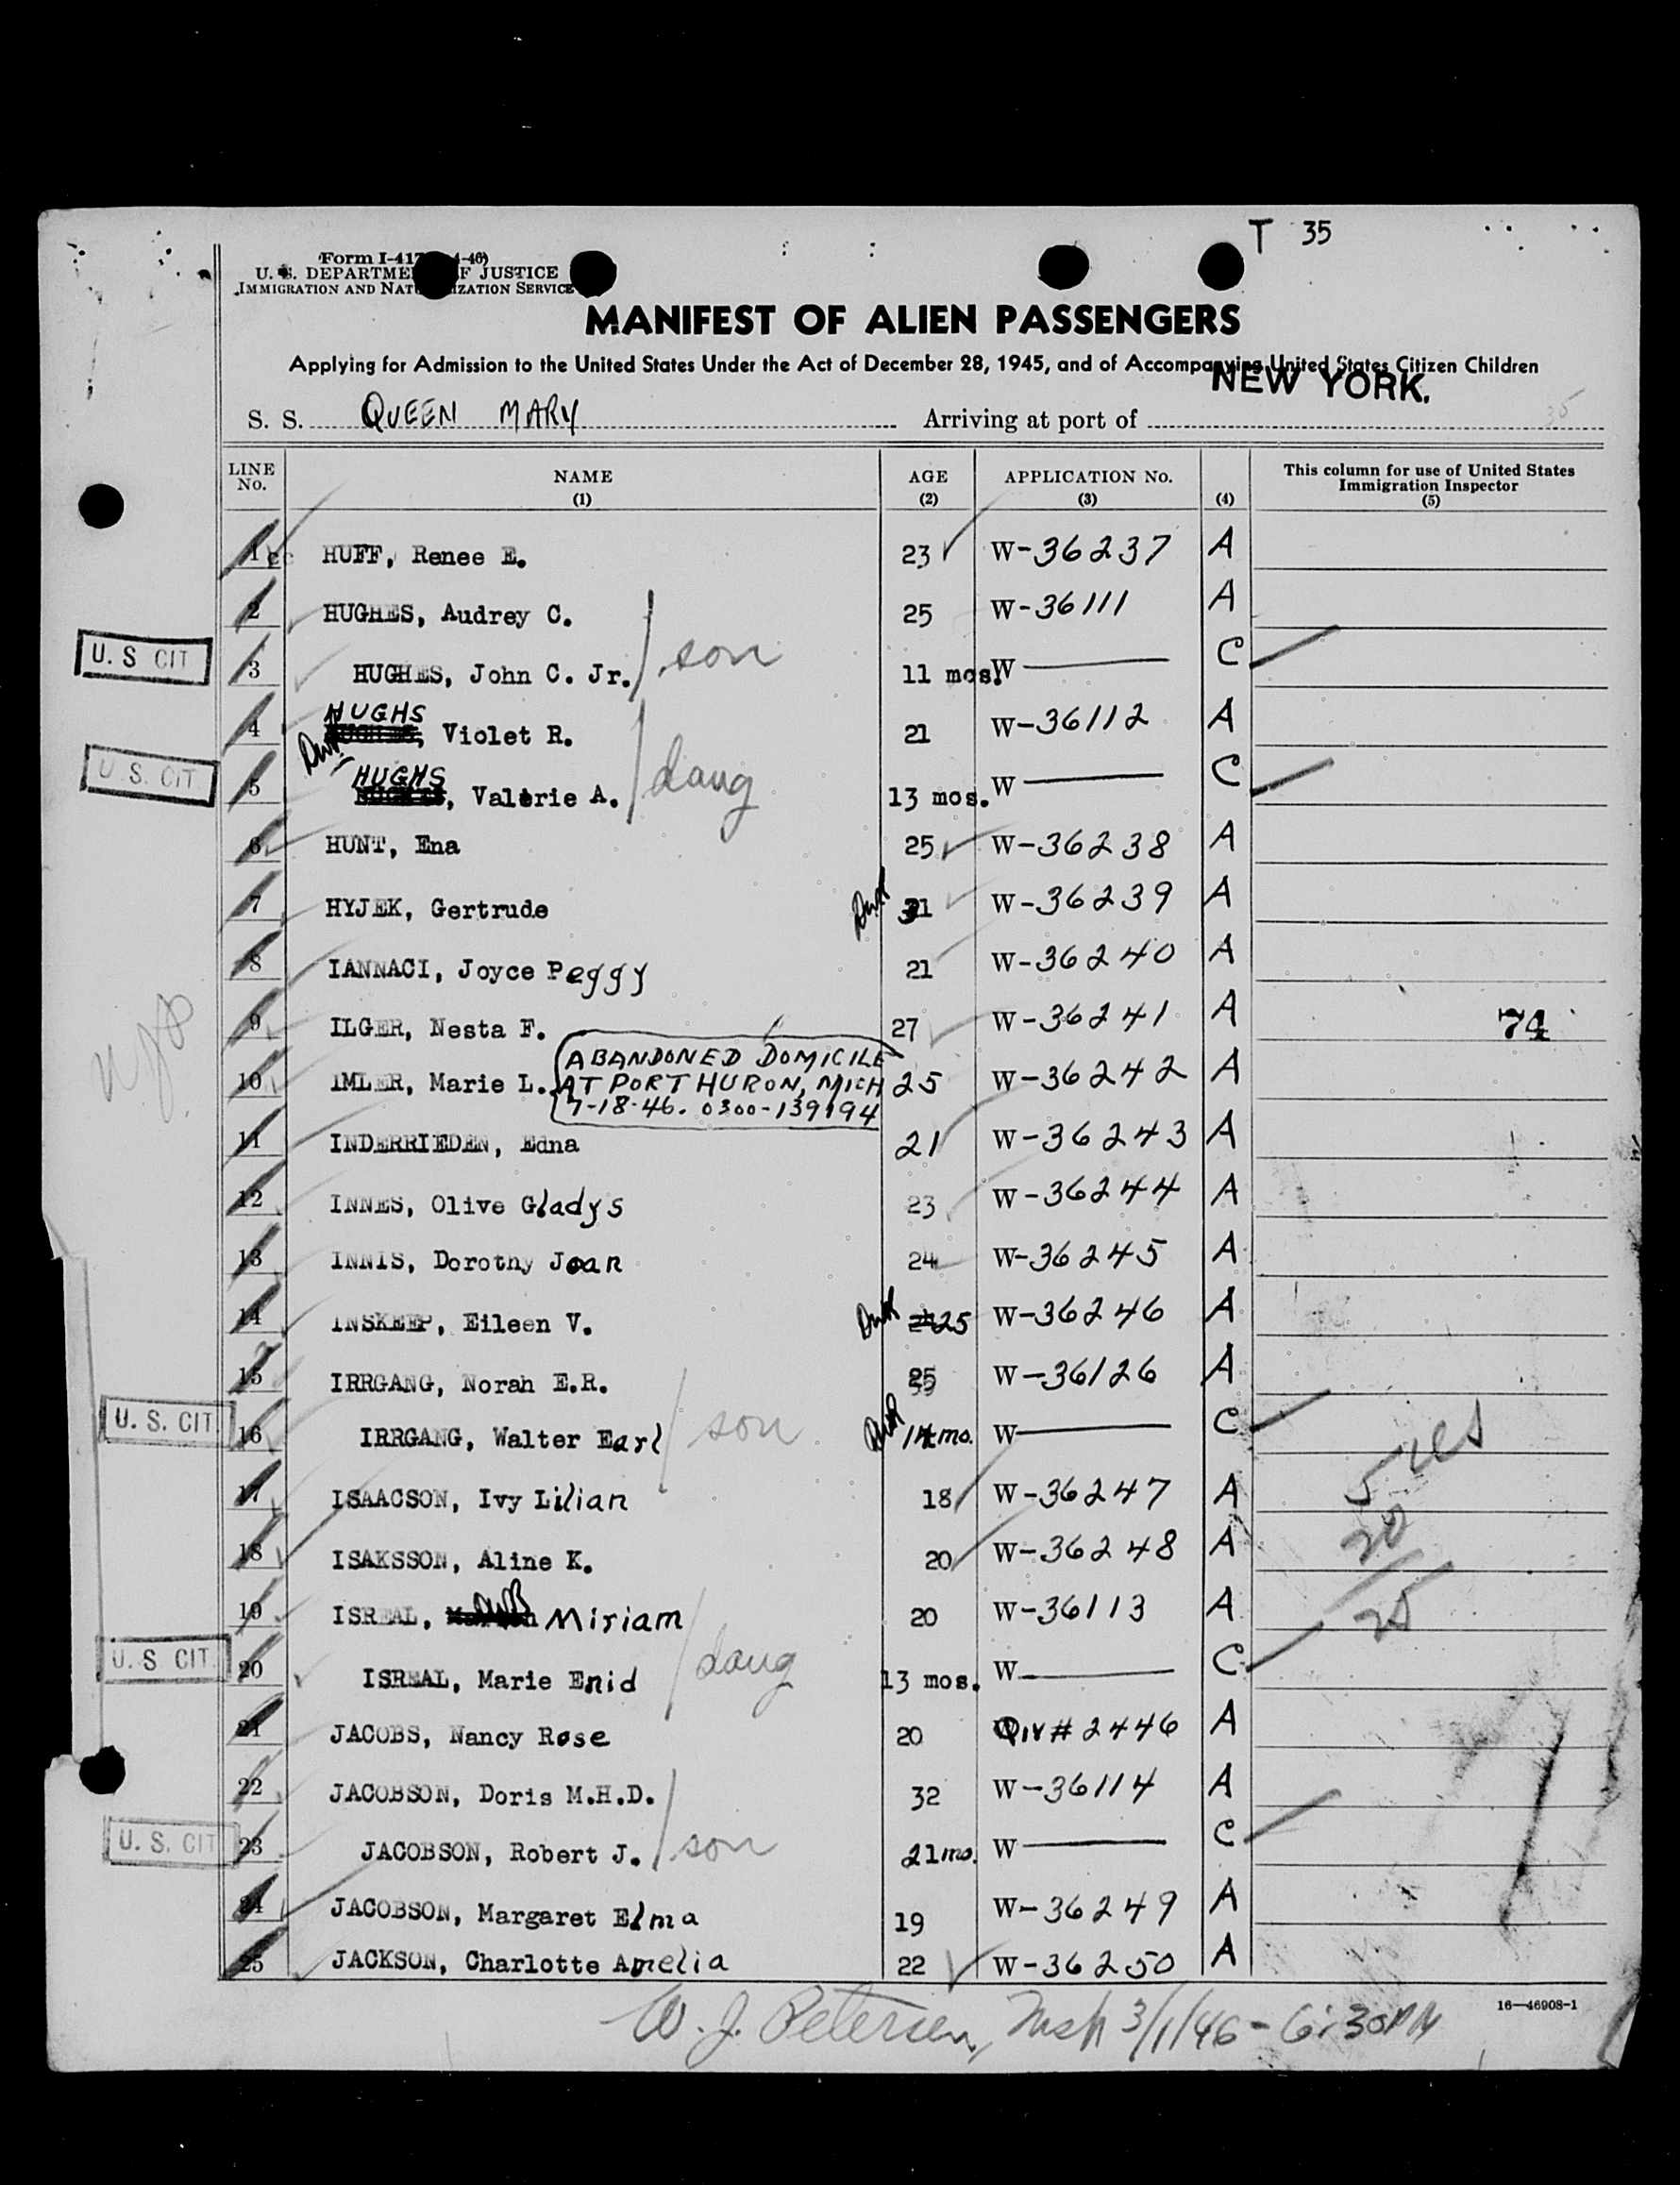 T 35
Form I-417 4-46)
U. S. DEPARTMENT OF JUSTICE
IMMIGRATION AND NATURALIZATION SERVICE
MANIFEST OF ALIEN PASSENGERS
Applying for Admission to the United States Under the Act of December 28, 1945, and of Accompanying United States Citizen Children
NEW YORK.
S. S. QUEEN MARY Arriving at port of
LINE No. NAME (1) AGE (2) APPLICATION No. (3) (4) This column for use of United States Immigration Inspector (5)
1 HUFF, Renee E. 23 W-36237 A
2 HUGHES, Audrey C. 25 W-36111 A
U. S CIT 3 HUGHES, John C. Jr. son 11 mos. W C
4 HUGHS Violet R. 21 W-36112 A
U. S. CIT 5 HUGHS, Valerie A. daug 13 mos. W C
6 HUNT, Ena 25 W-36238 A
7 HYJEK, Gertrude 31 W-36239 A
8 IANNACI, Joyce Peggy 21 W-36240 A
9 ILGER, Nesta F. 27 W-36241 A 74
ABANDONED DOMICILE
10 IMLER, Marie L. AT PORT HURON, MICH 25 W-36242 A
7-18-46. 0300-139194
11 INDERRIEDEN, Edna 21 W-36243 A
12 INNES, Olive Gladys 23 W-36244 A
13 INNIS, Dorothy Joan 24 W-36245 A
14 INSKEEP, Eileen V. 25 W-36246 A
15 IRRGANG, Norah E.R. 25 W-36126 A
U. S. CIT 16 IRRGANG, Walter Earl son 14 mo. W C
17 ISAACSON, Ivy Lilian 18 W-36247 A
18 ISAKSSON, Aline K. 20 W-36248 A
20
19 ISREAL, Miriam 20 W-36113 A
25
U. S CIT 20 ISREAL, Marie Enid daug 13 mos. W C
21 JACOBS, Nancy Rose 20 QIV# 2446 A
22 JACOBSON, Doris M.H.D. 32 W-36114 A
U. S. CIT 23 JACOBSON, Robert J. son 21 mo. W C
24 JACOBSON, Margaret Elma 19 W-36249 A
25 JACKSON, Charlotte Amelia 22 W-36250 A
16—46908-1
W. J. Petersen, Insp 3/1/46 - 6:30 PM